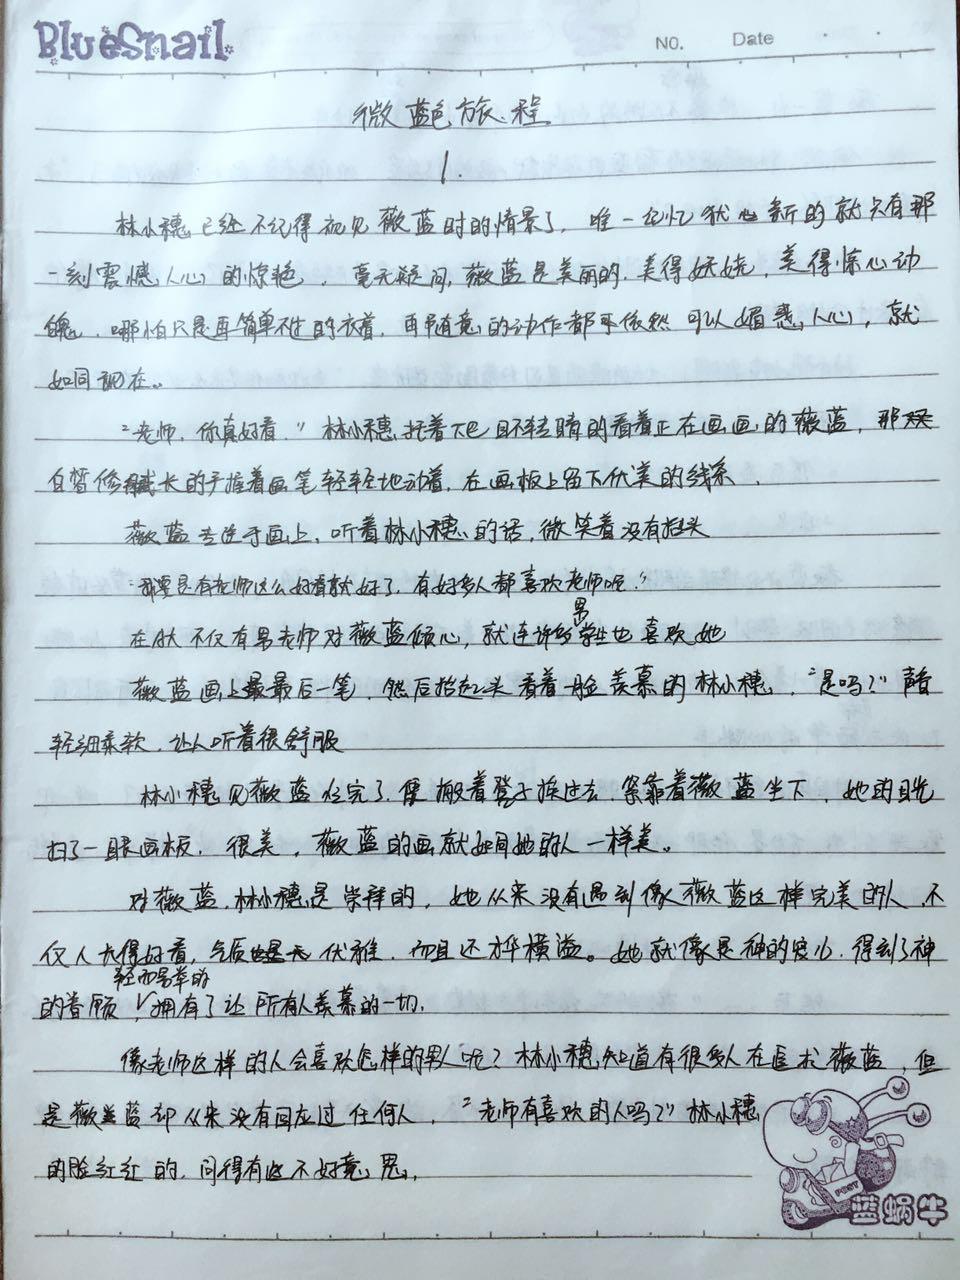 BlueSnail
No. Date
微蓝色旅程
1.
林小穗已经不记得初见薇蓝时的情景了，唯一记忆犹新的就只有那
一刻震憾人心的惊艳，毫无疑问，薇蓝是美丽的，美得妖娆，美得惊心动
魄，哪怕只是再简单不过的衣着，再随意的动作都依然可以媚惑人心，就
如同现在。
“老师，你真好看。”林小穗托着下巴目不转睛的看着正在画画的薇蓝，那
白皙修长的手握着画笔轻轻地动着，在画板上留下优美的线条，
薇蓝专注于画上，听着林小穗的话，微笑着没有抬头
“我要是有老师这么好看就好了，有好多人都喜欢老师呢。”
在 不仅有男老师对薇蓝倾心，就连许多男学生也喜欢她
薇蓝画上最最后一笔，然后抬起头看着一脸羡慕的林小穗，“是吗？”声音
轻细柔软，让人听着很舒服
林小穗见薇蓝忙完了，便搬着凳子挨过去，紧靠着薇蓝坐下，她的目光
扫了一眼画板，很美，薇蓝的画就如同她的人一样美。
对薇蓝，林小穗是崇拜的，她从来没有遇到像薇蓝这样完美的人，不
仅人长得好看，气质 优雅，而且还才华横溢。她就像是神的宠儿，得到了神
的眷顾，轻而易举的拥有了让所有人羡慕的一切，
像老师这样的人会喜欢怎样的男人呢？林小穗知道有很多人在追求薇蓝，但
是薇蓝却从来没有回应过任何人，“老师有喜欢的人吗？”林小穗
的脸红红的，问得有些不好意思，
POST
蓝蜗牛